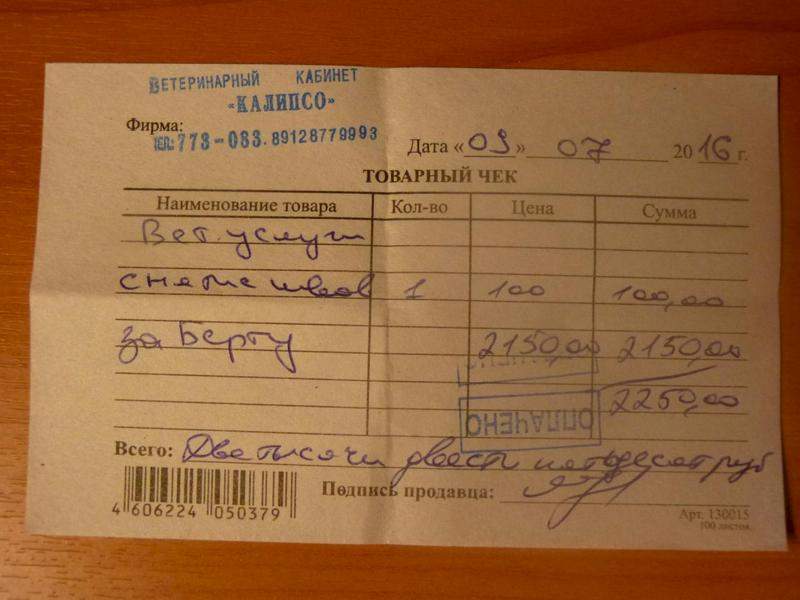 ВЕТЕРИНАРНЫЙ КАБИНЕТ
«КАЛИПСО»
Фирма:
ТЕЛ.: 773-083. 89128779993
Дата «09» 07 2016 г.
ТОВАРНЫЙ ЧЕК
Наименование товара Кол-во Цена Сумма
Вет. услуги
снятие швов 1 100 100,00
за Берту 2150,00 2150,00
2250,00
ОПЛАЧЕНО
Всего: Две тысячи двести пятьдесят руб
Подпись продавца:
4 606224 050379
Арт. 130015
100 листов